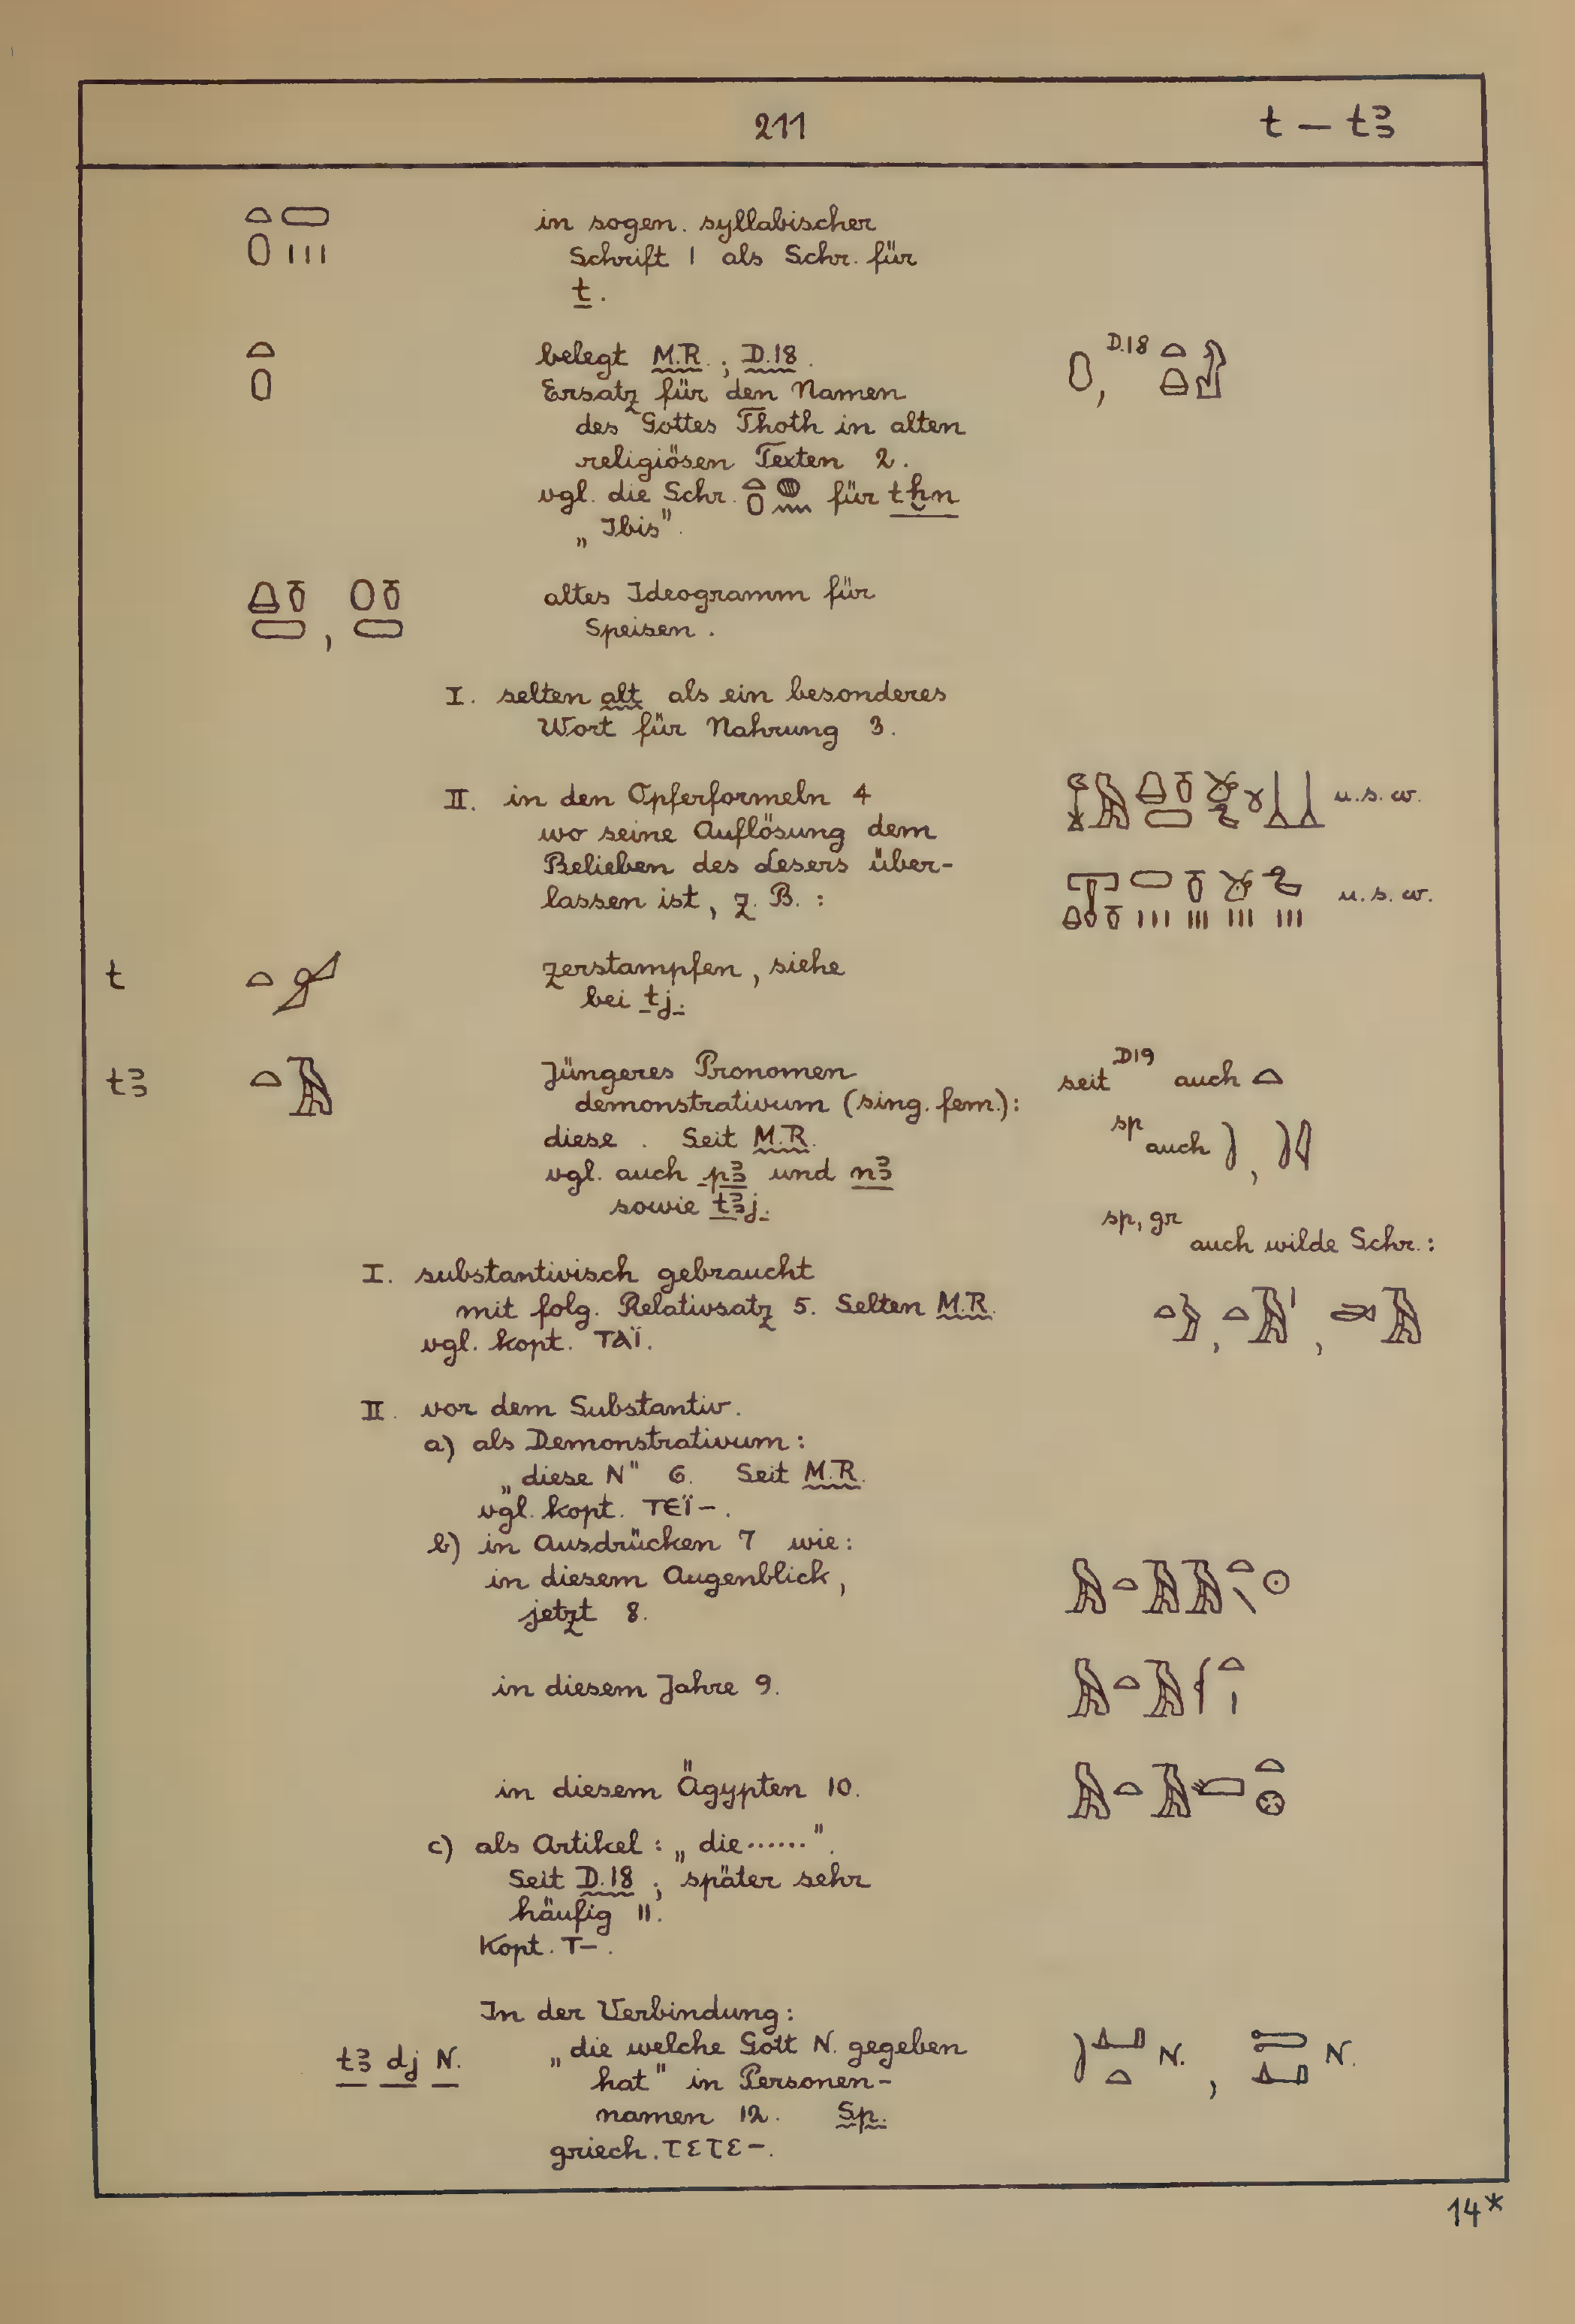 211
t – tꜣ
in sogen. syllabischer
Schrift 1 als Schr. für
t.
belegt M.R.; D.18.
D.18
Ersatz für den Namen
des Gottes Thoth in alten
religiösen Texten 2.
vgl. die Schr. für tḫn
„Ibis".
altes Ideogramm für
Speisen.
I. selten alt als ein besonderes
Wort für Nahrung 3.
II. in den Opferformeln 4
u.s.w.
wo seine Auflösung dem
Belieben des Lesers über-
lassen ist, z.B.:
u.s.w.
t
zerstampfen, siehe
bei tj.
tꜣ
Jüngeres Pronomen
seit D19 auch
demonstrativum (sing. fem.):
diese. Seit M.R.
sp auch
vgl. auch pꜣ und nꜣ
sowie tꜣj.
sp, gr auch wilde Schr.:
I. substantivisch gebraucht
mit folg. Relativsatz 5. Selten M.R.
vgl. kopt. ⲦⲀΪ.
II. vor dem Substantiv.
a) als Demonstrativum:
„diese N" 6. Seit M.R.
vgl. kopt. ⲦⲈΪ-.
b) in Ausdrücken 7 wie:
in diesem Augenblick,
jetzt 8.
in diesem Jahre 9.
in diesem Ägypten 10.
c) als Artikel: „die......".
Seit D.18; später sehr
häufig 11.
Kopt. Ⲧ-.
In der Verbindung:
tꜣ dj N.
„die welche Gott N. gegeben
N. , N.
hat" in Personen-
namen 12. Sp.
griech. ΤΕΤΕ-.
14*